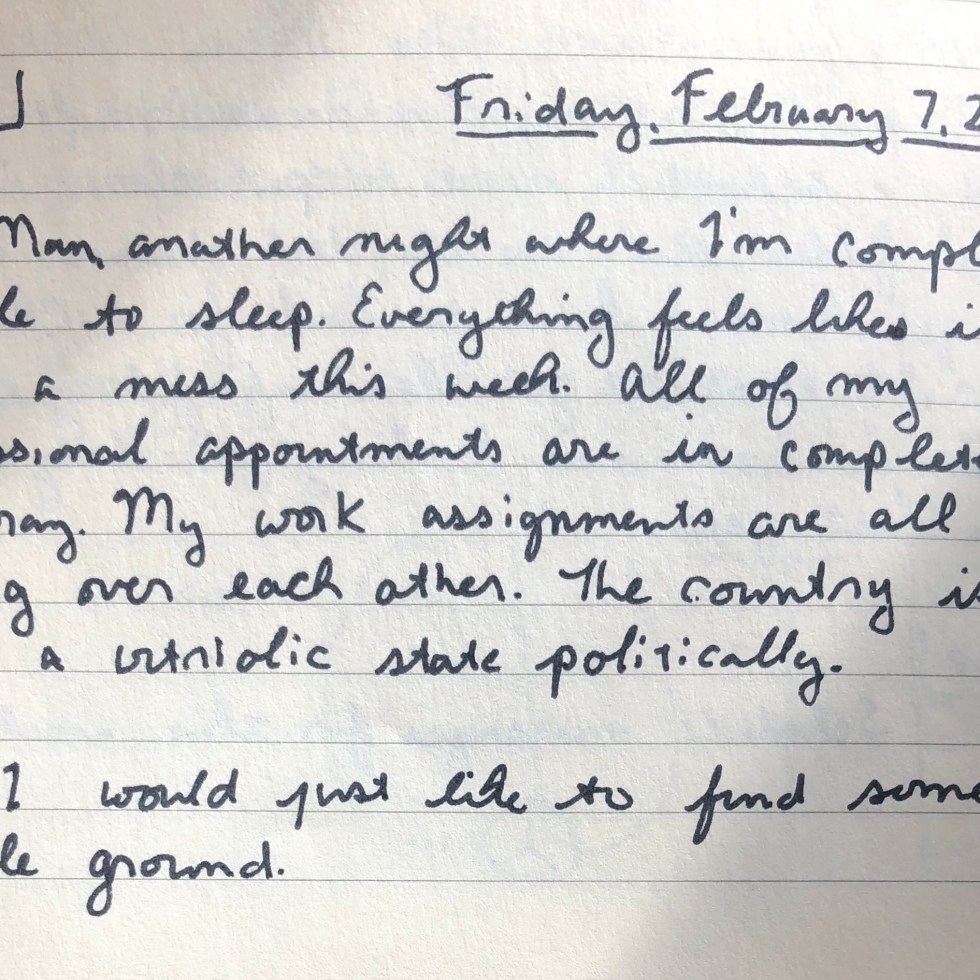 Friday, February 7, 2
Man, another night where I'm compl
le to sleep. Everything feels likes i
a mess this week. All of my
ssional appointments are in complet
ray. My work assignments are all
g over each other. The country is
a vitriolic state politically.
I would just like to find some
le ground.